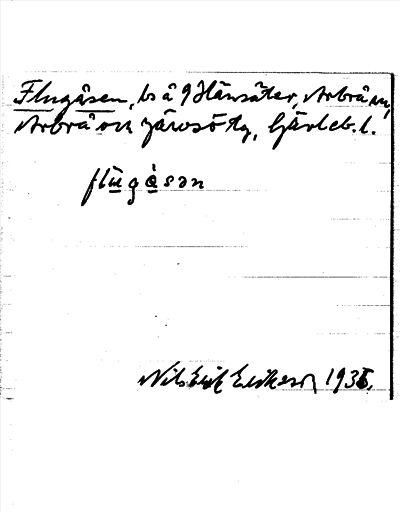 Flugåsen, bs å Hänsäter, Arbrå sn,
Arbrå och Järvsö tg, Gävleb. l.
flu̲g å̲ sən
Nils Erik Eriksson 1935.